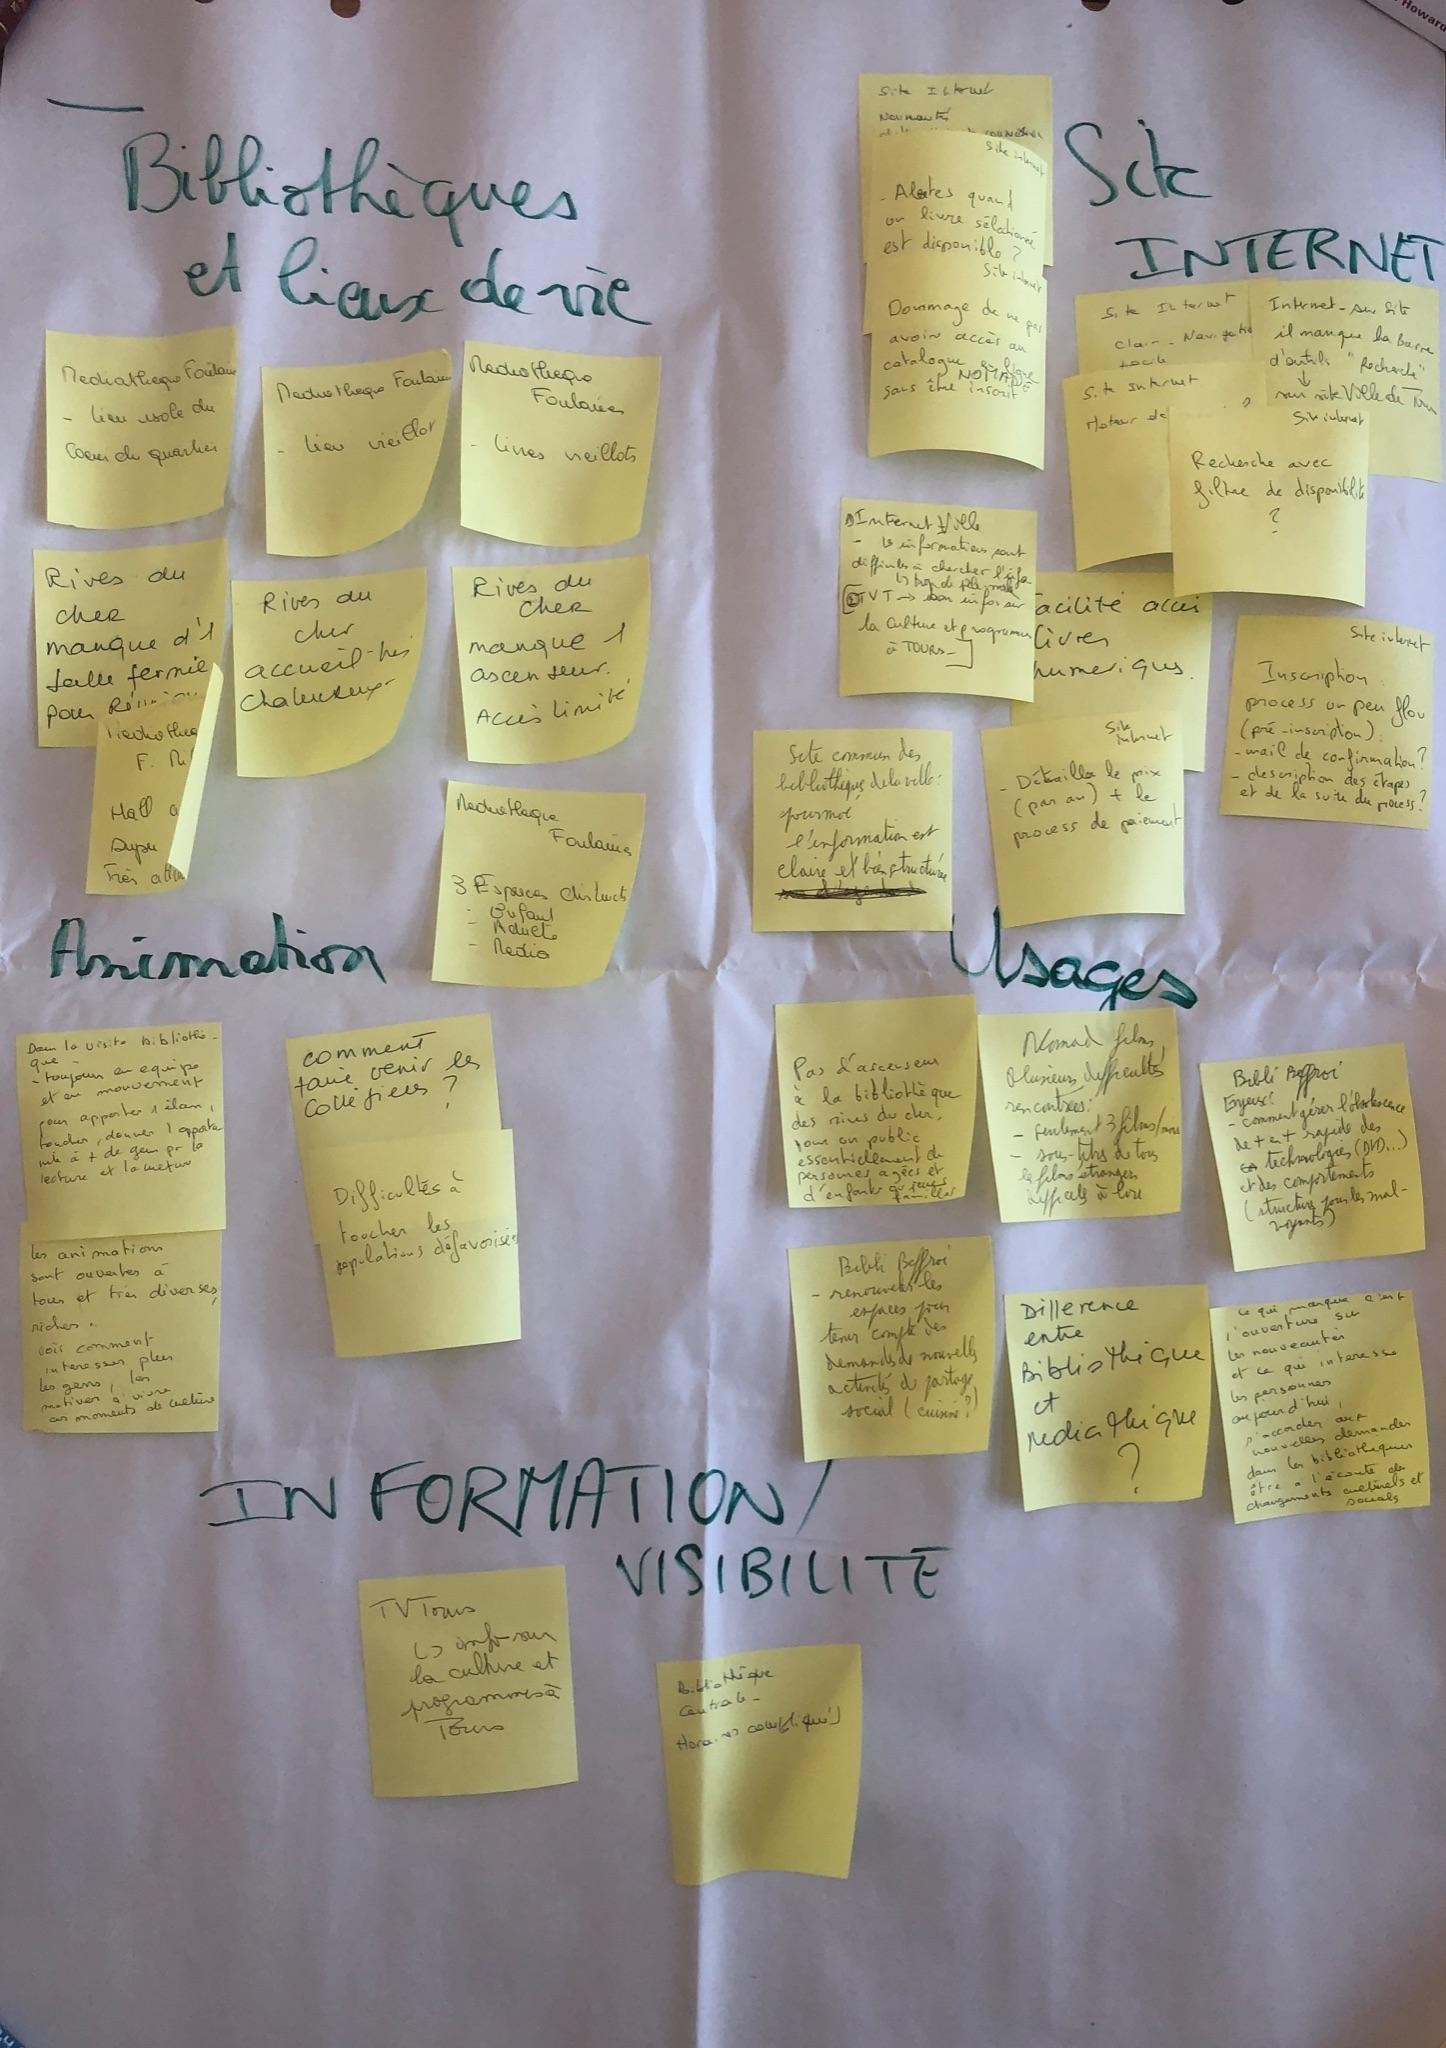 Howard
Bibliothèques
et lieux de vie
Mediatheque Fontaines
- lieu isole du
Coeur du quartier
Mediatheque Fontaines
- lieu vieillot
Mediatheque
Fontaines
- livres vieillots
Rives du
cher
manque d'1
salle fermée
pour Réunion
Rives du
cher
accueil très
chaleureux
Rives du
cher
manque 1
ascenseur.
Accès limité
Mediathe
F. Mi
Hall a
Très
Mediatheque
Fontaines
3 Espaces distincts
- Enfant
- Adulte
- Media
Site
INTERNET
Site Internet
Nouveautés
Site internet
- Alertes quand
un livre sélectionné
est disponible ?
Site internet
Dommage de ne pas
avoir accès au
catalogue en ligne
NOMADE
sans être inscrit
Site Internet
Clair - Navigation
facile
Internet - sur Site
il manque la barre
d'outils "Recherche"
↓
sur site Ville de Tours
Site Internet
Moteur de
?
Site internet
Recherche avec
filtre de disponibilité
?
① Internet Ville
- les informations sont
difficiles à chercher l'info
② TVT → bon infos sur
la culture et programmes
à TOURS -
Facilité accès
livres
numeriques.
Site internet
Inscription :
process un peu flou
(pré-inscription) :
- mail de confirmation ?
- description des étapes
et de la suite du process ?
Site commun des
bibliothèques de la ville :
pour moi
l'information est
claire et bien structurée
Site
internet
- Détailler le prix
(par an) + le
process de paiement
Animation
Dans la visite Bibliothè-
que -
- toujours en équipe
et en mouvement
pour apporter 1 élan,
toucher, donner 1 opportu
nité à + de gens par la
lecture et la
les animations
sont ouvertes à
tous et très diverses,
riches.
voir comment
interesser plus
les gens, les
motiver à vivre
ces moments de culture
comment
faire venir les
collégiens ?
Difficultés à
toucher les
populations défavorisées
Usages
Pas d'ascenseur
à la bibliothèque
des rives du cher,
pour un public
essentiellement de
personnes agées et
d'enfants ou jeunes
familles
Nomad films,
plusieurs difficultés
rencontrées :
- seulement 3 films/mois
- sous-titres de tous
les films étrangers
difficile à lire
Bibli Beffroi
Enjeux :
- comment gérer l'obsolescence
de + en + rapide des
technologies (DVD...)
et des comportements
(structure pour les mal-
voyants)
Bibli Beffroi
- renouveler les
espaces pour
tenir compte des
demandes de nouvelles
activités de partage
social (cuisine ?)
Différence
entre
Bibliothèque
et
médiathèque
?
Ce qui manque c'est
l'ouverture sur
les nouveautés
et ce qui interesse
les personnes
aujourd'hui,
s'accorder aux
nouvelles demandes
dans les bibliothèques
être à l'écoute des
changements culturels et
sociaux
INFORMATION/
VISIBILITE
TV Tours
↳ info sur
la culture et
programmes à
Tours
Bibliothèque
Centrale -
Horaires compliqués